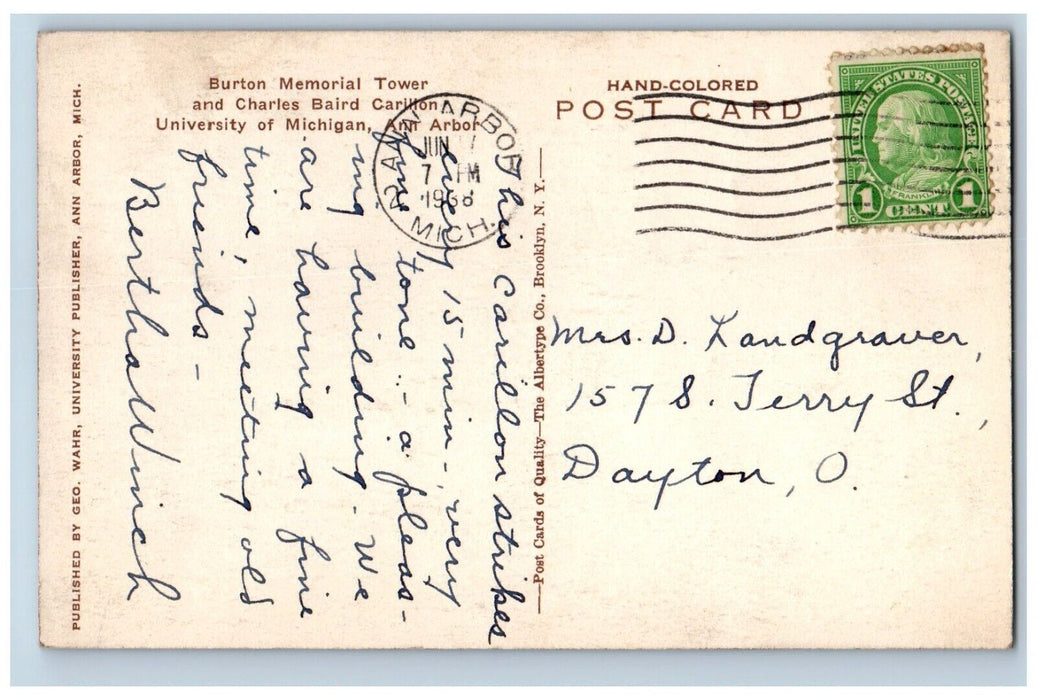 Burton Memorial Tower
and Charles Baird Carillon
University of Michigan, Ann Arbor
HAND-COLORED
POST CARD
UNITED STATES POSTAGE
FRANKLIN
1 CENT 1
ANN ARBOR
JUN
7 PM
1938
MICH.
This Carillon strikes
every 15 min-, very
fine tone - a pleas-
ing building - We
are having a fine
time, meeting old
friends -
Bertha Winch
Mrs. D. Landgraver,
157 S. Terry St.,
Dayton, O.
PUBLISHED BY GEO. WAHR, UNIVERSITY PUBLISHER, ANN ARBOR, MICH.
Post Cards of Quality—The Albertype Co., Brooklyn, N. Y.